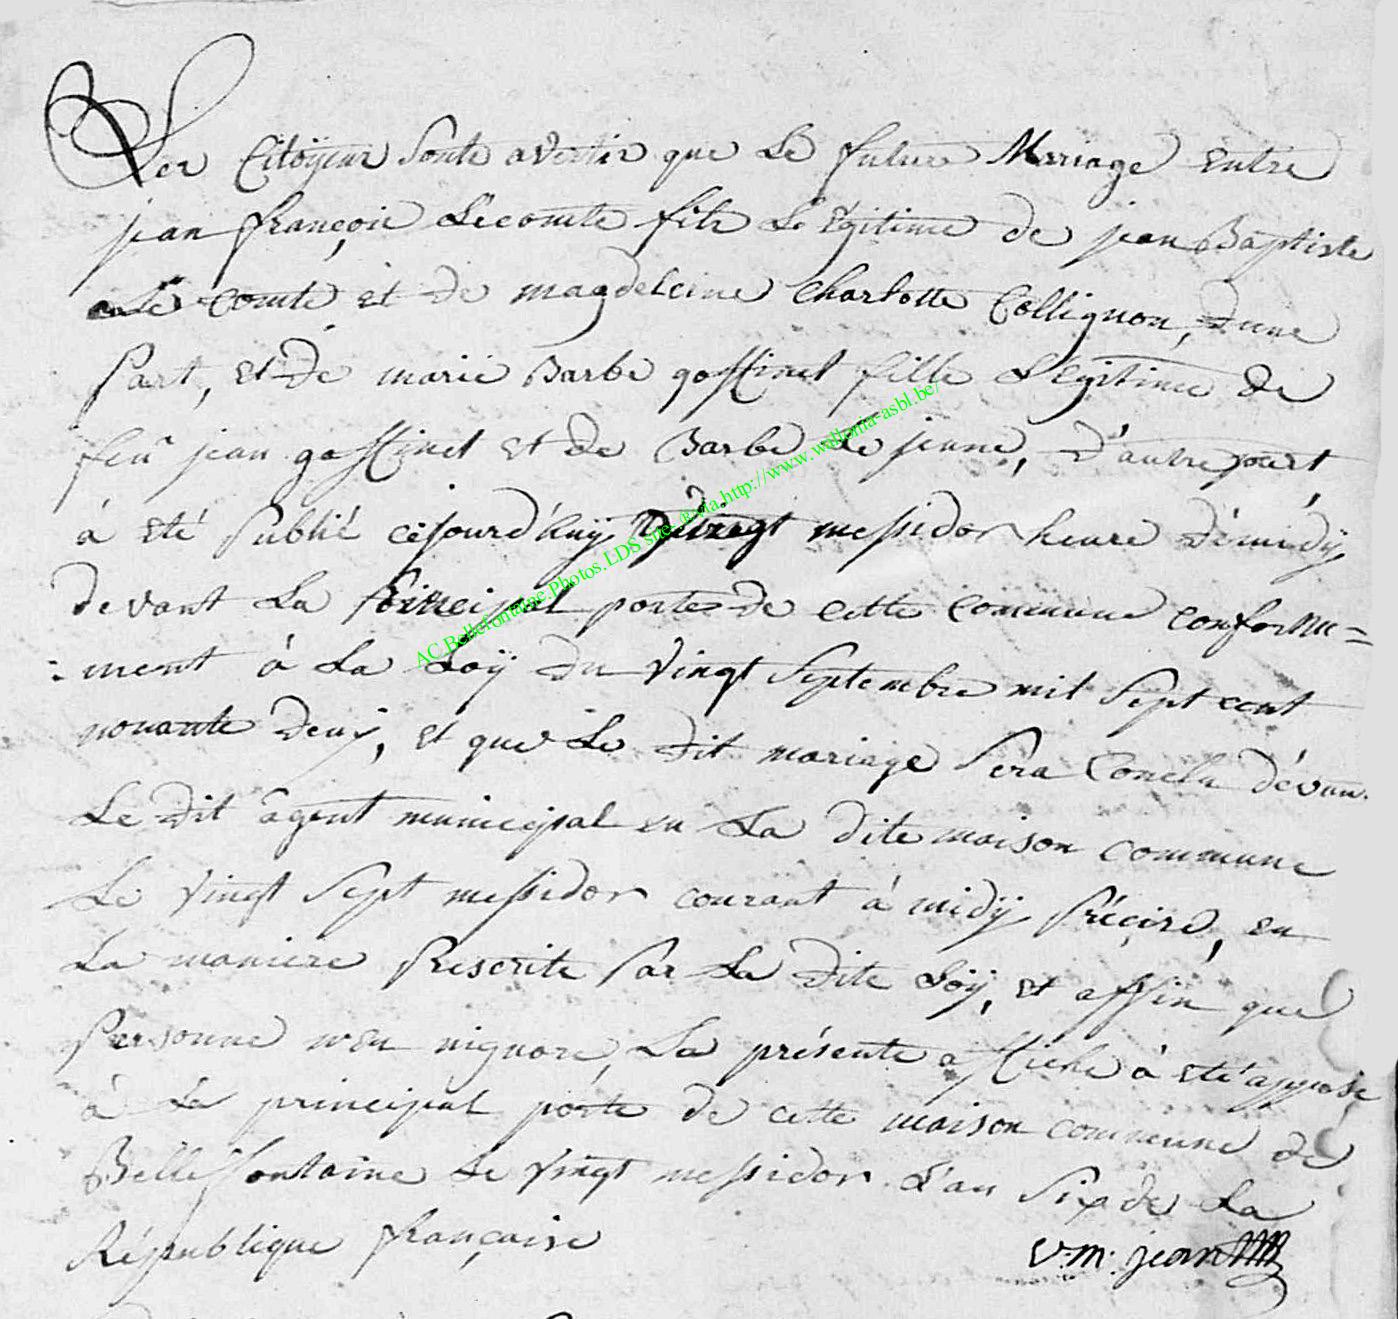 Les Citoÿens Sonts avertis que Le future Mariage entre
jean françois Lecomte fils Légitime de jean Baptiste
Le Comte et de magdeleine Charlotte Collignon, d'une
Part, et de marie Barbe gossinet fille Légitime de
feû jean gossinet et de Barbe Le jeune, d'autre part
à été Publié cejourd'huÿ vingt messidor heure démidÿ
devant La Principal porte de cette commune conformé=
:ment à La Loÿ du Vingt Septembre mil Sept cent
nonante deux, et que Le dit mariage Sera Conclu dévan
Le dit agent municipal en La dite maison commune
Le Vingt Sept messidor courant à midÿ Précise, en
La maniere Prescrite Par La dite Loÿ, et affin que
Personne n'en nignore, La présente affiche à eté appose
à La principal porte de cette maison commune de
Bellefontaine Le Vingt messidor L'an Six de La
République française
V:m: jean
AC.Bellefontaine.Photos.LDS site via http://www.wallonia-asbl.be/